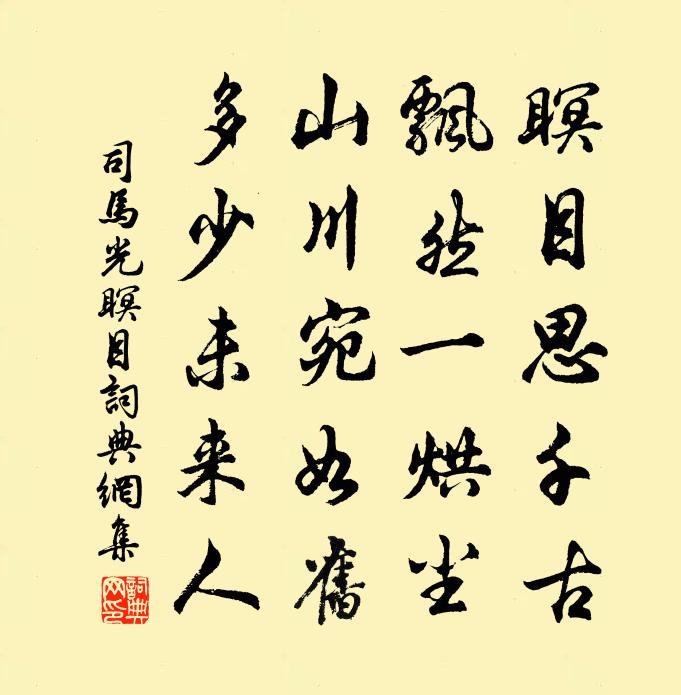 瞑目思千古
飄然一烘尘
山川宛如舊
多少未来人
司馬光瞑目詞典網集
詞典网印